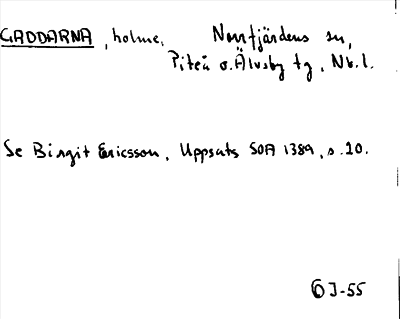 GADDARNA, holme, Norrfjärdens sn,
Piteå o. Älvsby tg, Nb. l.
Se Birgit Ericsson, Uppsats SOA 1389, s. 20.
ÖJ-55